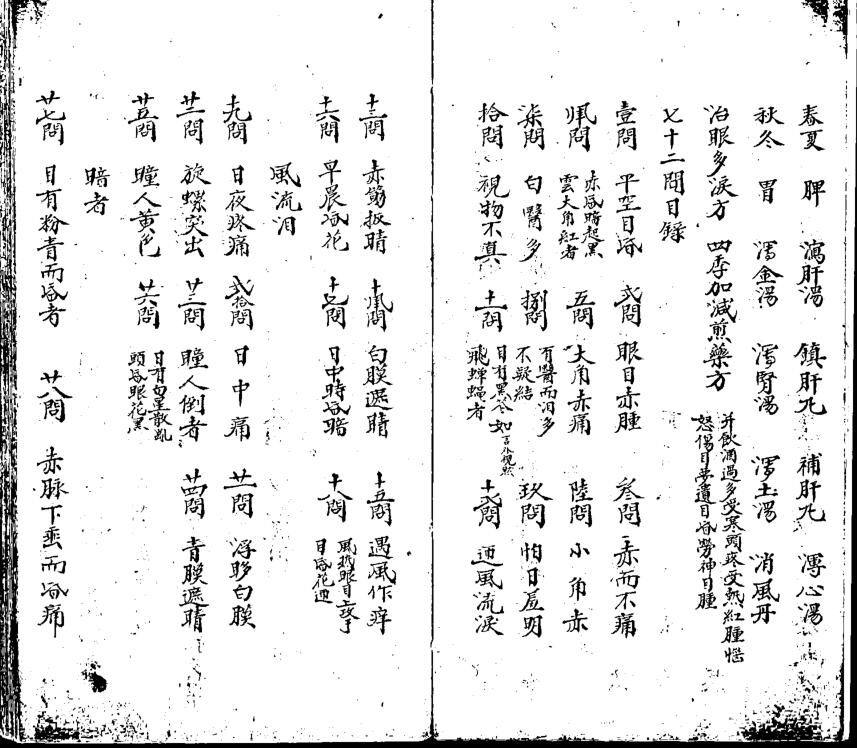 春夏　脾　瀉肝湯　鎮肝丸　補肝丸　瀉心湯
秋冬　胃　瀉金湯　瀉腎湯　瀉土湯　消風丹
治眼多淚方　四季加減煎藥方　并飲酒過多受寒頭疼受熱紅腫惱怒傷目夢遺目昏勞神目腫
七十二問目錄
壹問　平空目昏　弍問　眼目赤腫　叁問　赤而不痛
肆問　赤昏暗起黑雲大角紅者　五問　大角赤痛　陸問　小角赤
柒問　白醫多　捌問　有醫而泪多不凝結　玖問　怕日羞明
拾問　視物不真　十一問　目有黑冬如飛蟬蠅者　十弍問　迎風流淚
十三問　赤筋扳睛　十肆問　白膜遮睛　十五問　遇風作痒
十六問　早晨昏花　十七問　日中時昏暗　十八問　目昏花迎
風流泪
十九問　日夜疼痛　弍拾問　日中痛　廿一問　浮眵白膜
廿二問　旋螺突出　廿三問　瞳人倒者　廿四問　青膜遮睛
廿五問　瞳人黄色　廿六問　目有白星散亂頭昏眼花黑
暗者
廿七問　目有粉青而昏者　廿八問　赤脉下垂而昏痛